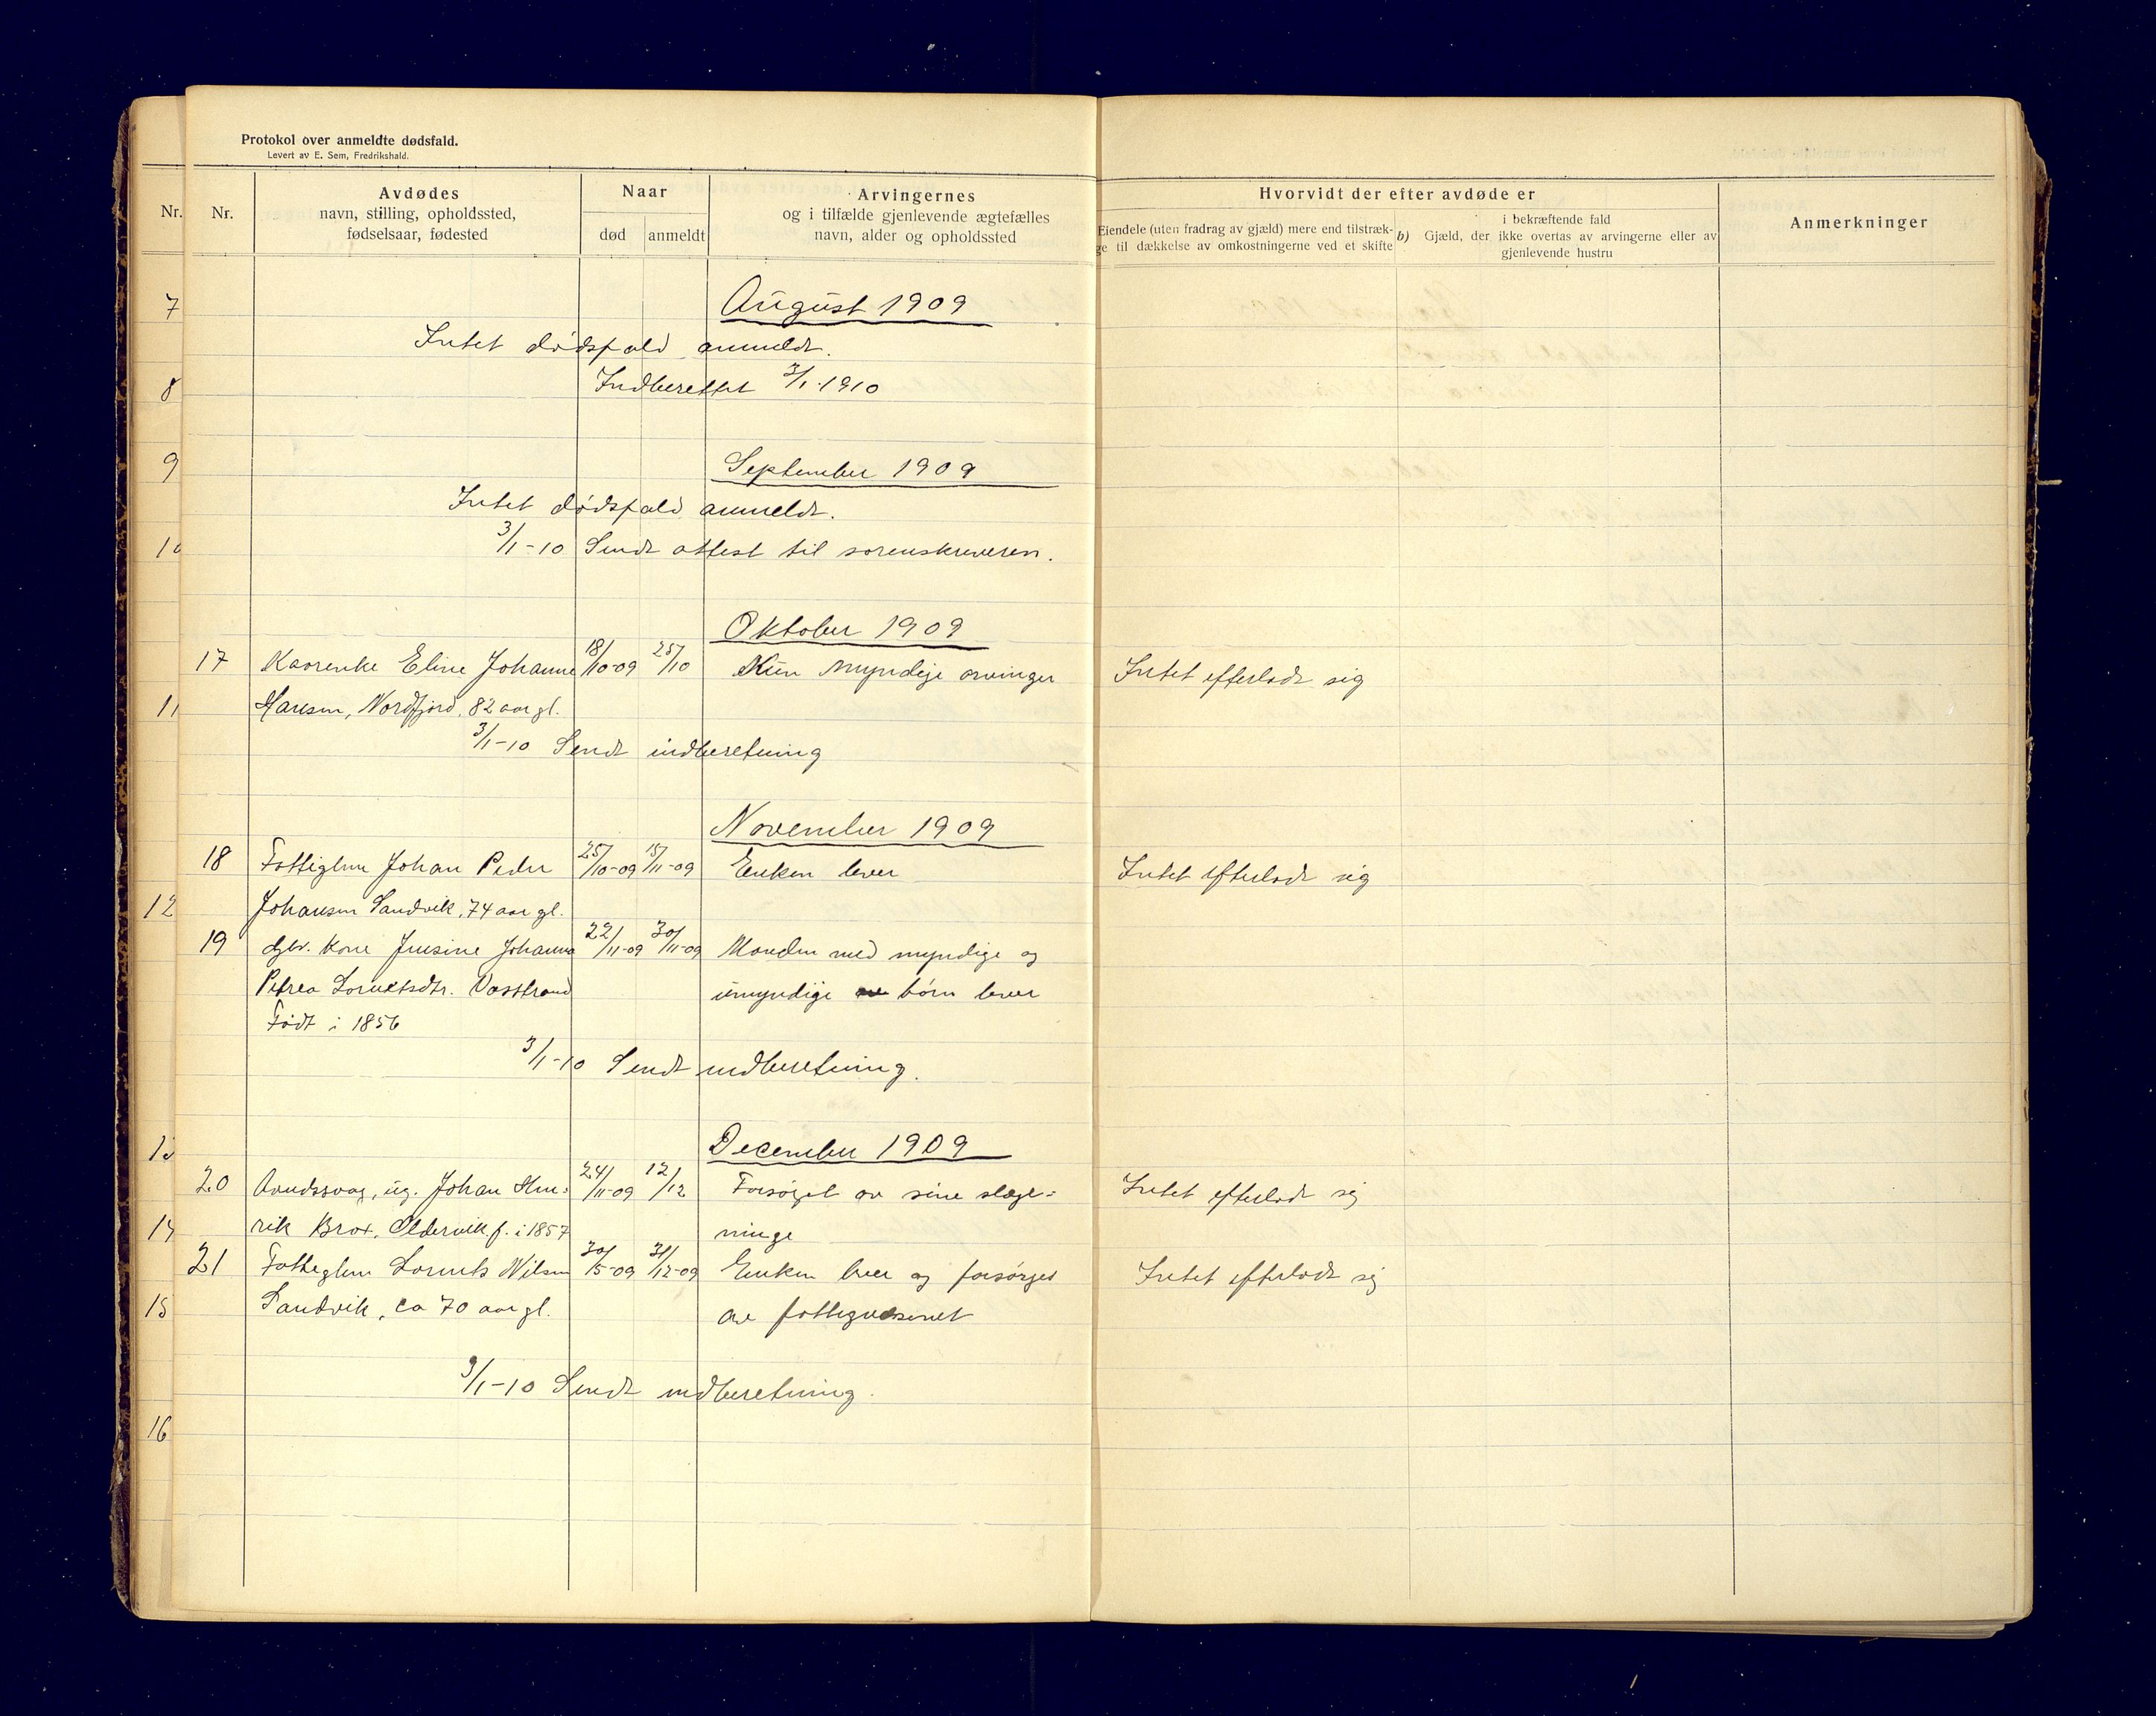 Protokol over anmeldte dødsfald.
Levert av E. Sem, Fredrikshald.
Nr.
Nr.
Avdødes
navn, stilling, opholdssted,
fødselsaar, fødested
Naar
død
anmeldt
Arvingernes
og i tilfælde gjenlevende ægtefælles
navn, alder og opholdssted
Hvorvidt der efter avdøde er
Eiendele (uten fradrag av gjæld) mere end tilstræk-
ge til dækkelse av omkostningerne ved et skifte
b) Gjæld, der
i bekræftende fald
ikke overtas av arvingerne eller av
gjenlevende hustru
Anmerkninger
7
8
9
10
11
12
13
14
15
16
August 1909
Intet dødsfald anmeldt.
Indberettet 3/1-1910
September 1909
Intet dødsfald anmeldt.
3/1-10 Sendt attest til sorenskriveren.
Oktober 1909
17 Eline Johanne 18/10-09 25/10 Kun myndige arvinger Intet efterlodt sig
Hansen, Nordfjord, 82 aar gl.
3/1-10 Sendt indberetning
November 1909
18 Fattiglem Johan Peder 25/10-09 15/11-09 Enken lever Intet efterlodt sig
Johansen Sandvik, 74 aar gl.
19 Gbr. kone Johanna 22/11-09 30/11-09 Manden med myndige og
Petrea Lorentsdtr. Vasstrand umyndige børn lever
Født i 1856
3/1-10 Sendt indberetning.
December 1909
20 Aandssvag, ug. Johan Hen- 24/11-09 12/12 Forsørget av sine slægt- Intet efterlodt sig
rik Brox, Oldervik f. i 1857 ninge
21 Fattiglem Lorents Nilsen 30/5-09 31/12-09 Enken lever og forsørges Intet efterlodt sig
Sandvik, ca 70 aar gl. av fattigvæsenet
3/1-10 Sendt indberetning.